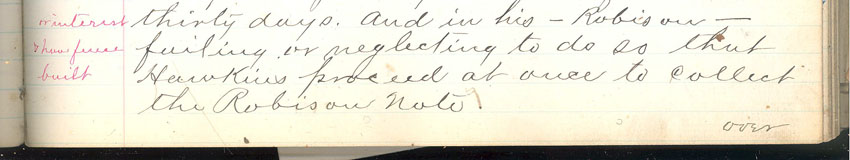 or interest
& have fence
built
thirty days. And in his - Robison -
failing or neglecting to do so that
Hawkins proceed at once to collect
the Robison Note.
over